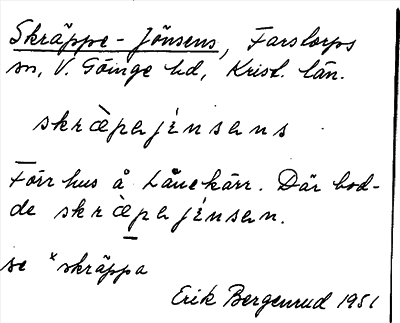 Skräppe-Jönsens, Farstorps
sn, V. Göinge hd, Krist. län.
skræ̀pajínsans
Förr hus å Lånekärr. Där bod-
de skræ̀pajínsan.
se *skräppa
Erik Bergenrud 1951